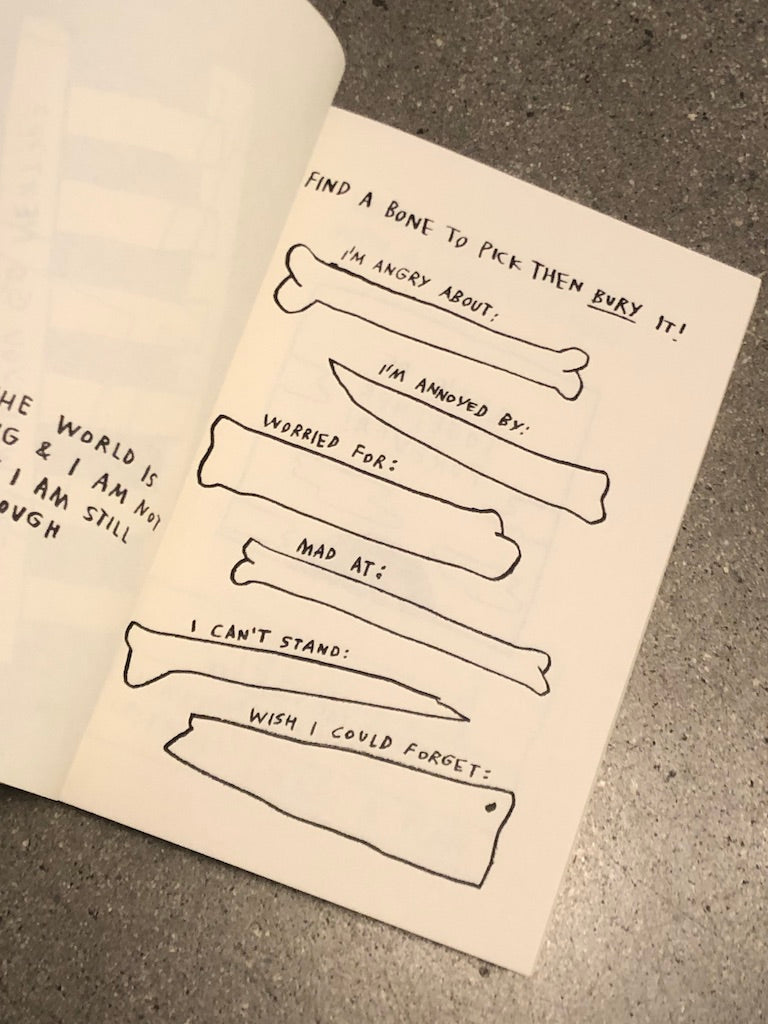 HE WORLD IS
G & I AM NOT
I AM STILL
OUGH
FIND A BONE TO PICK THEN BURY IT!
I'M ANGRY ABOUT:
I'M ANNOYED BY:
WORRIED FOR:
MAD AT:
I CAN'T STAND:
WISH I COULD FORGET: